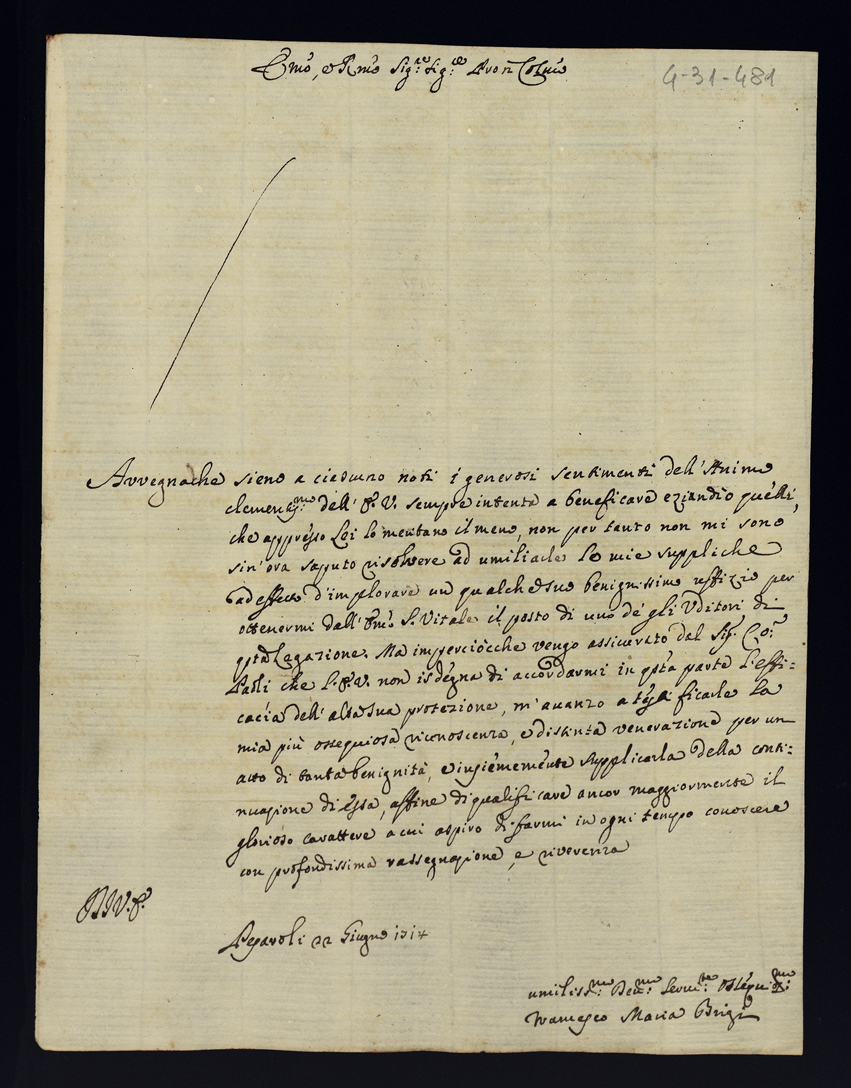 Emo, e Rmo Sig.re Sig.re Pron Colmo
4-31-481
Avvegnache sieno a ciascuno noti i generosi sentimenti dell'Animo
clementmo dell'E.V. sempre intento a beneficare eziandio quelli,
che appresso Lei lo meritano il meno, non per tanto non mi sono
sin'ora saputo risolvere ad umiliarle le mie suppliche
ad effetto d'implorare un qualche suo benignissimo uffizio per
ottenermi dall'Emo S. Vitale il posto di uno de gli Uditori di
qsta Legazione. Ma imperciocche vengo assicurato dal Sig. Co:
che l'E.V. non isdegna di accordarmi in qsta parte l'effi=
cacia dell'alta sua protezione, m'avanzo a ficarle la
mia più ossequiosa riconoscenza, e distinta venerazione per un
atto di tanta benignità, e insiememente supplicarla della conti=
nuazione di essa, affine di qualificare ancor maggiormente il
glorioso carattere a cui aspiro di farmi in ogni tempo conoscere
con profondissima rassegnazione, e riverenza
D V.E.
22 Giugno 1714
umiliss.mo Dev.mo Serv.re Ossequi.mo
Francesco Maria